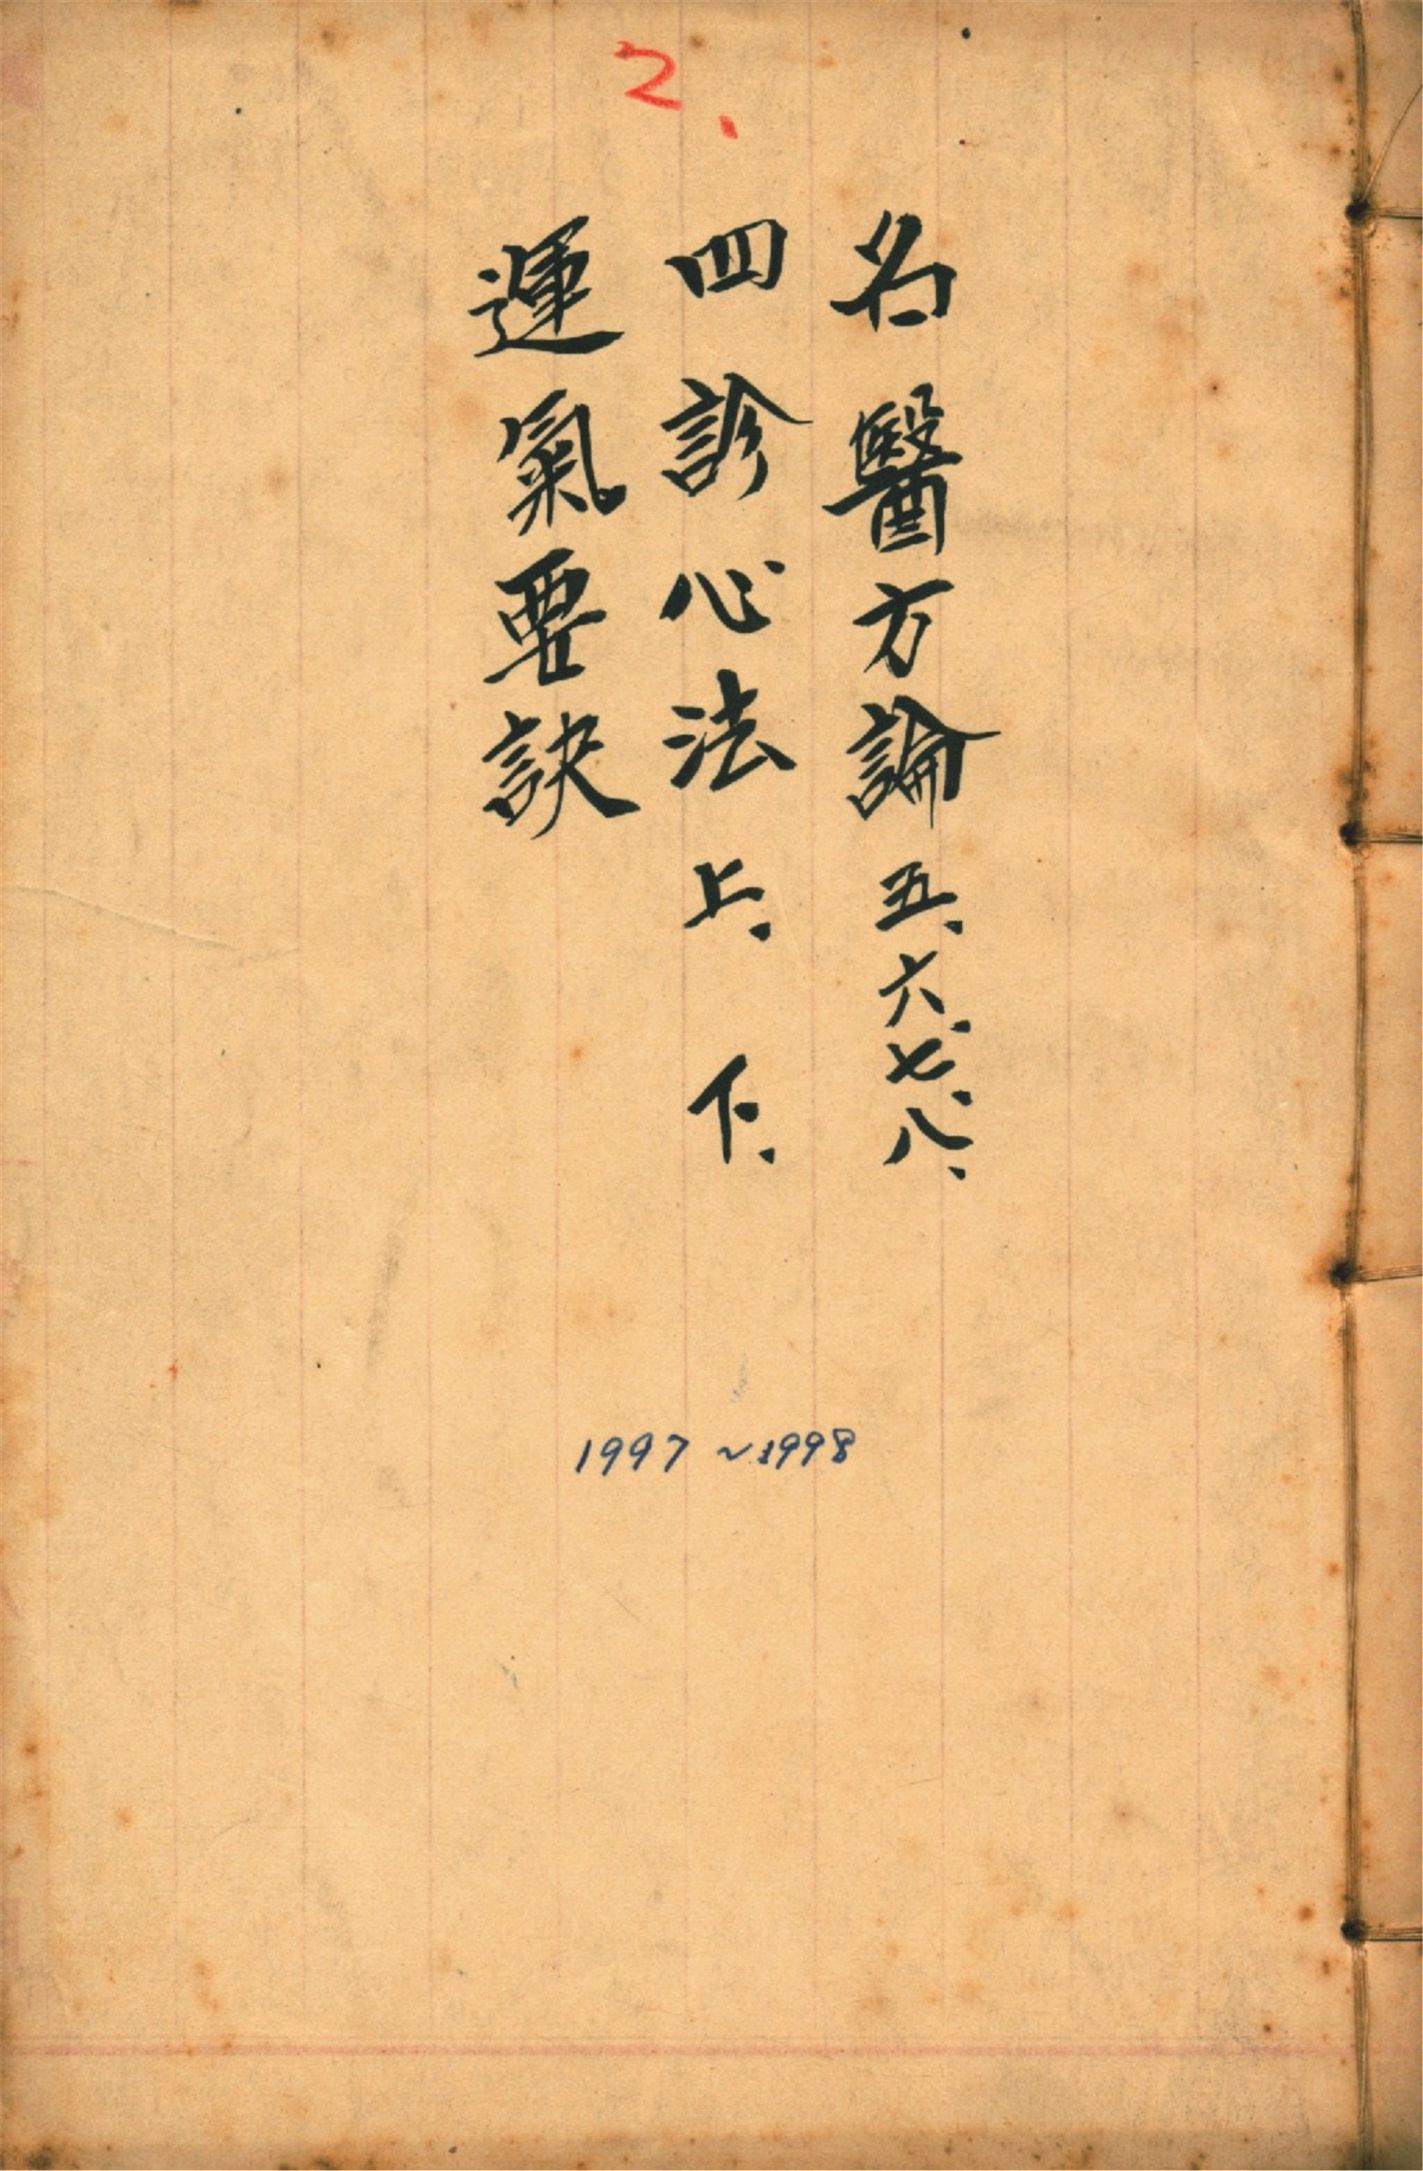 2.
名醫方論五、六、七、八、
四診心法上、下、
運氣要訣
1997~1998